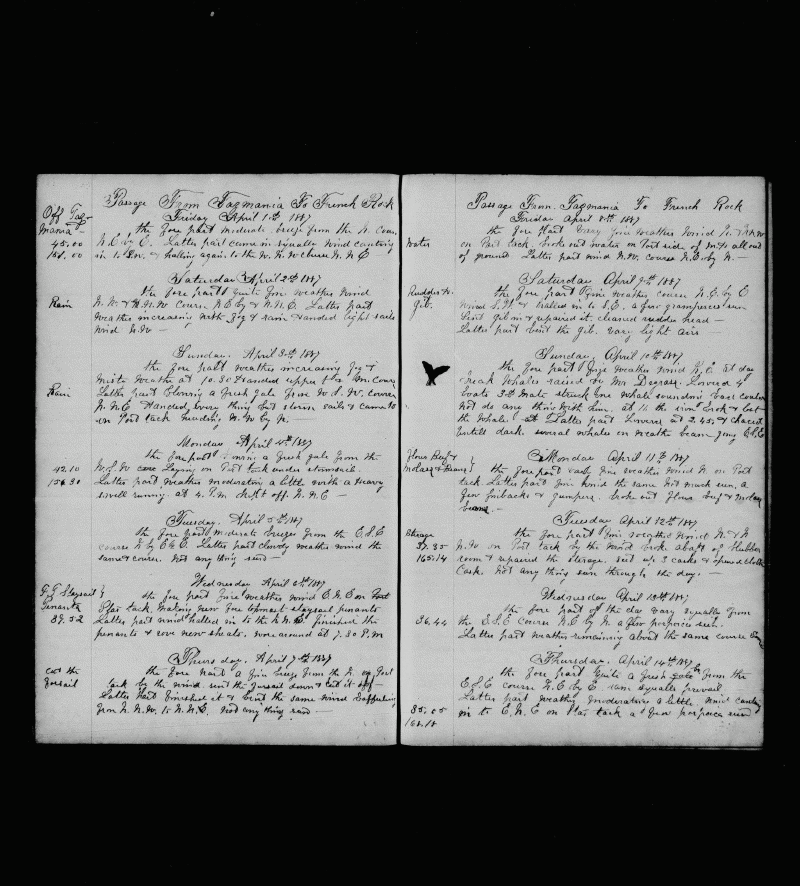 Passage From Tazmania To French Rock
Friday April 1st 1887
Off Taz-
mania -
45.00
the fore part moderate breeze from the N. Cours
N.E. by E. Latter part came in squally wind canting
in to & halling again to the W.N.W course N.N.E
Saturday April 2nd 1887
Rain
the fore part quit fine weather wind
N.W. & W.N.W Course N.E by & N.N.E. Latter part
weather increasing with fog & rain & anded light sails
wind N.W -
Sunday. April 3rd 1887
Rain
the fore part weather increasing fog &
misty weather at 10.30 & anded upper t.s. M. Course
Latter part blowing a fresh gale from W.S.W. course
N.N.E & anded every thing but storm sails & came to
on Port tack heading N.W by N.
Monday April 4th 1887
42.10
the fore part blowing a fresh gale from the
W.S.W Laying on Port tack under stormsails.
Latter part weather moderating a little with a heavy
swell running at 4 P.m. kept off. N.N.E -
Tuesday. April 5th 1887
the fore part moderate breeze from the E.S.E
course N by E & E. Latter part cloudy weather wind the
same & course. Not any thing seen -
Wednesday April 6th 1887
F.T. Staysail
Penants
39.52
the fore part fine weather wind E.N.E on Port
Star tack. Making new fore topmast staysail penants
Latter part wind halled in to the N.N.E finished the
penants & rove new sheats. wore around at 7.30 P.M
Thursday. April 7th 1887
cut the
forsail
the fore part a fine breeze from the N. on Port
tack by the wind. sent the forsail down & cut it off -
Latter part finished it & bent the same wind baffeling
from N.N.W. to N.N.E. Not any thing seen -
Passage From Tazmania To French Rock
Friday April 8th 1887
water
the fore part very fine weather wind N. & N.N.W
on Port tack. broke out water on Port side of
of ground Latter part wind N.W. course N.E by N. -
Saturday April 9th 1887
Rudder H.
Gib.
the fore part fine weather course N.E. by E
wind & halled in to S.E. a few grampuses seen
Sent gib in & repaired it. cleared rudder head -
Latter part bent the gib. vary light airs
Sunday April 10th 1887
the fore part fine weather wind N.E. at day
break whales raised by Mr Degrass. Lowerd 4
boats 3rd mate struck one whale sounding bad could
not do any thing with him. at 11. the iron broke & lost
the whale. at Latter part Lowerd at 2.45 & chased
untill dark. several whales in weath beam going E.S.E
Monday April 11th 1887
Flour Beef &
Molases & Beans
the fore part vary fine weather wind N on Port
tack. Latter part fine wind the same not much seen, a
few finbacks & jumpers. broke out flour beef & molases
beans. -
Tuesday April 12th 1887
Sterage
37.35
165.14
the fore part fine weather wind N. & N
N.W on Port tack by the wind broke abaft of blubber
room & repaired the sterage. set up 3 casks & opened cloth
cask. Not any thing seen through the day. -
Wednesday April 13th 1887
36.44
the fore part of the day vary squally from
the E.S.E course N.E by N. a few porpoises seen.
Latter part weather remaining about the same course
Thursday. April 14th 1887
35.05
the fore part quite a fresh gale from the
E.S.E course N.E by E. rain squalls prevail
Latter part weather moderating a little wind canting
in to E.N.E on Star tack a few porpoises seen